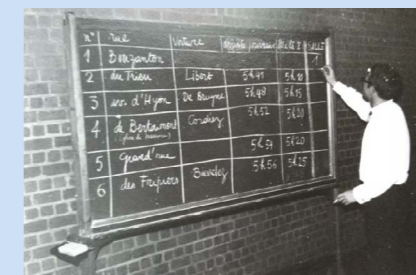 n° rue Voiture départs journaux
1 Bouzanton 1
2 du Trieu Libert 5h47 5h10
3 av. d'Hyon De Bruyne 5h48 5h15
4 de Bertaimont Cordiez 5h52 5h20
5 Grand'rue 5h54 5h20
6 des Fripiers 5h56 5h25